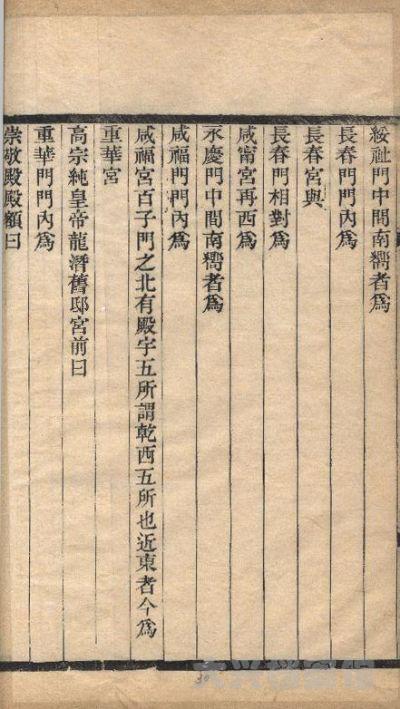 綏祉門中間南嚮者為
長春門門內為
長春宮與
長春門相對為
咸甯宮再西為
永慶門中間南嚮者為
咸福門門內為
咸福宮百子門之北有殿宇五所謂乾西五所也近東者今為
重華宮
高宗純皇帝龍潛舊邸宮前曰
重華門門內為
崇敬殿殿額曰
30